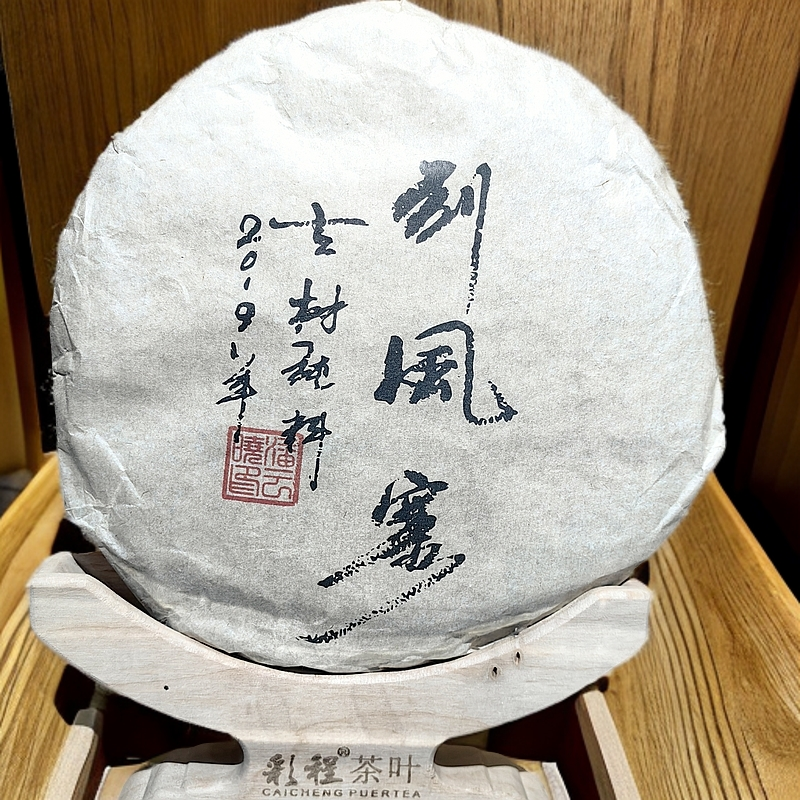 刮風寨
古树纯料
2019年
彩程®茶叶
CAICHENG PUERTEA